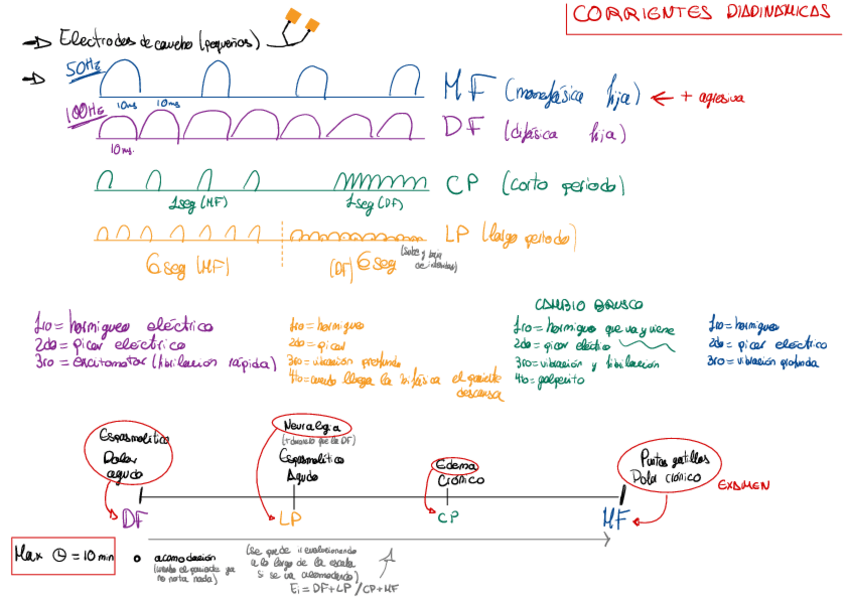 CORRIENTES DIADINAMICAS
→ Electrodos de caucho (pequeños)
→ 50Hz
10ms 10ms
MF (monofásica fija) ← + agresiva
100Hz
10ms.
DF (difásica fija)
1seg (MF) 1seg (DF)
CP (corto periodo)
6 seg (MF) (DF) 6 seg (sube y baja de intensidad)
LP (largo periodo)
1ro = hormigueo eléctrico
2do = picar eléctrico
3ro = excitomotor (fibrilación rápida)
1ro = hormigueo
2do = picar
3ro = vibración profunda
4to = cuando llega la difásica el paciente
descansa
CAMBIO BRUSCO
1ro = hormigueo que va y viene
2do = picar eléctrico
3ro = vibración y fibrilación
4to = golpecito
1ro = hormigueo
2do = picar eléctrico
3ro = vibración profunda
Espasmolítico
Dolor
agudo
Neuralgia
(+ duradero que la DF)
Espasmolítico
Agudo
Edema
Crónico
Puntos gatillos
Dolor crónico
EXAMEN
DF LP CP MF
Max = 10 min
acomodación
(cuando el paciente ya
no nota nada)
(se puede ir evolucionando
a lo largo de la escala
si se va acomodando)
Ej = DF+LP / CP+MF